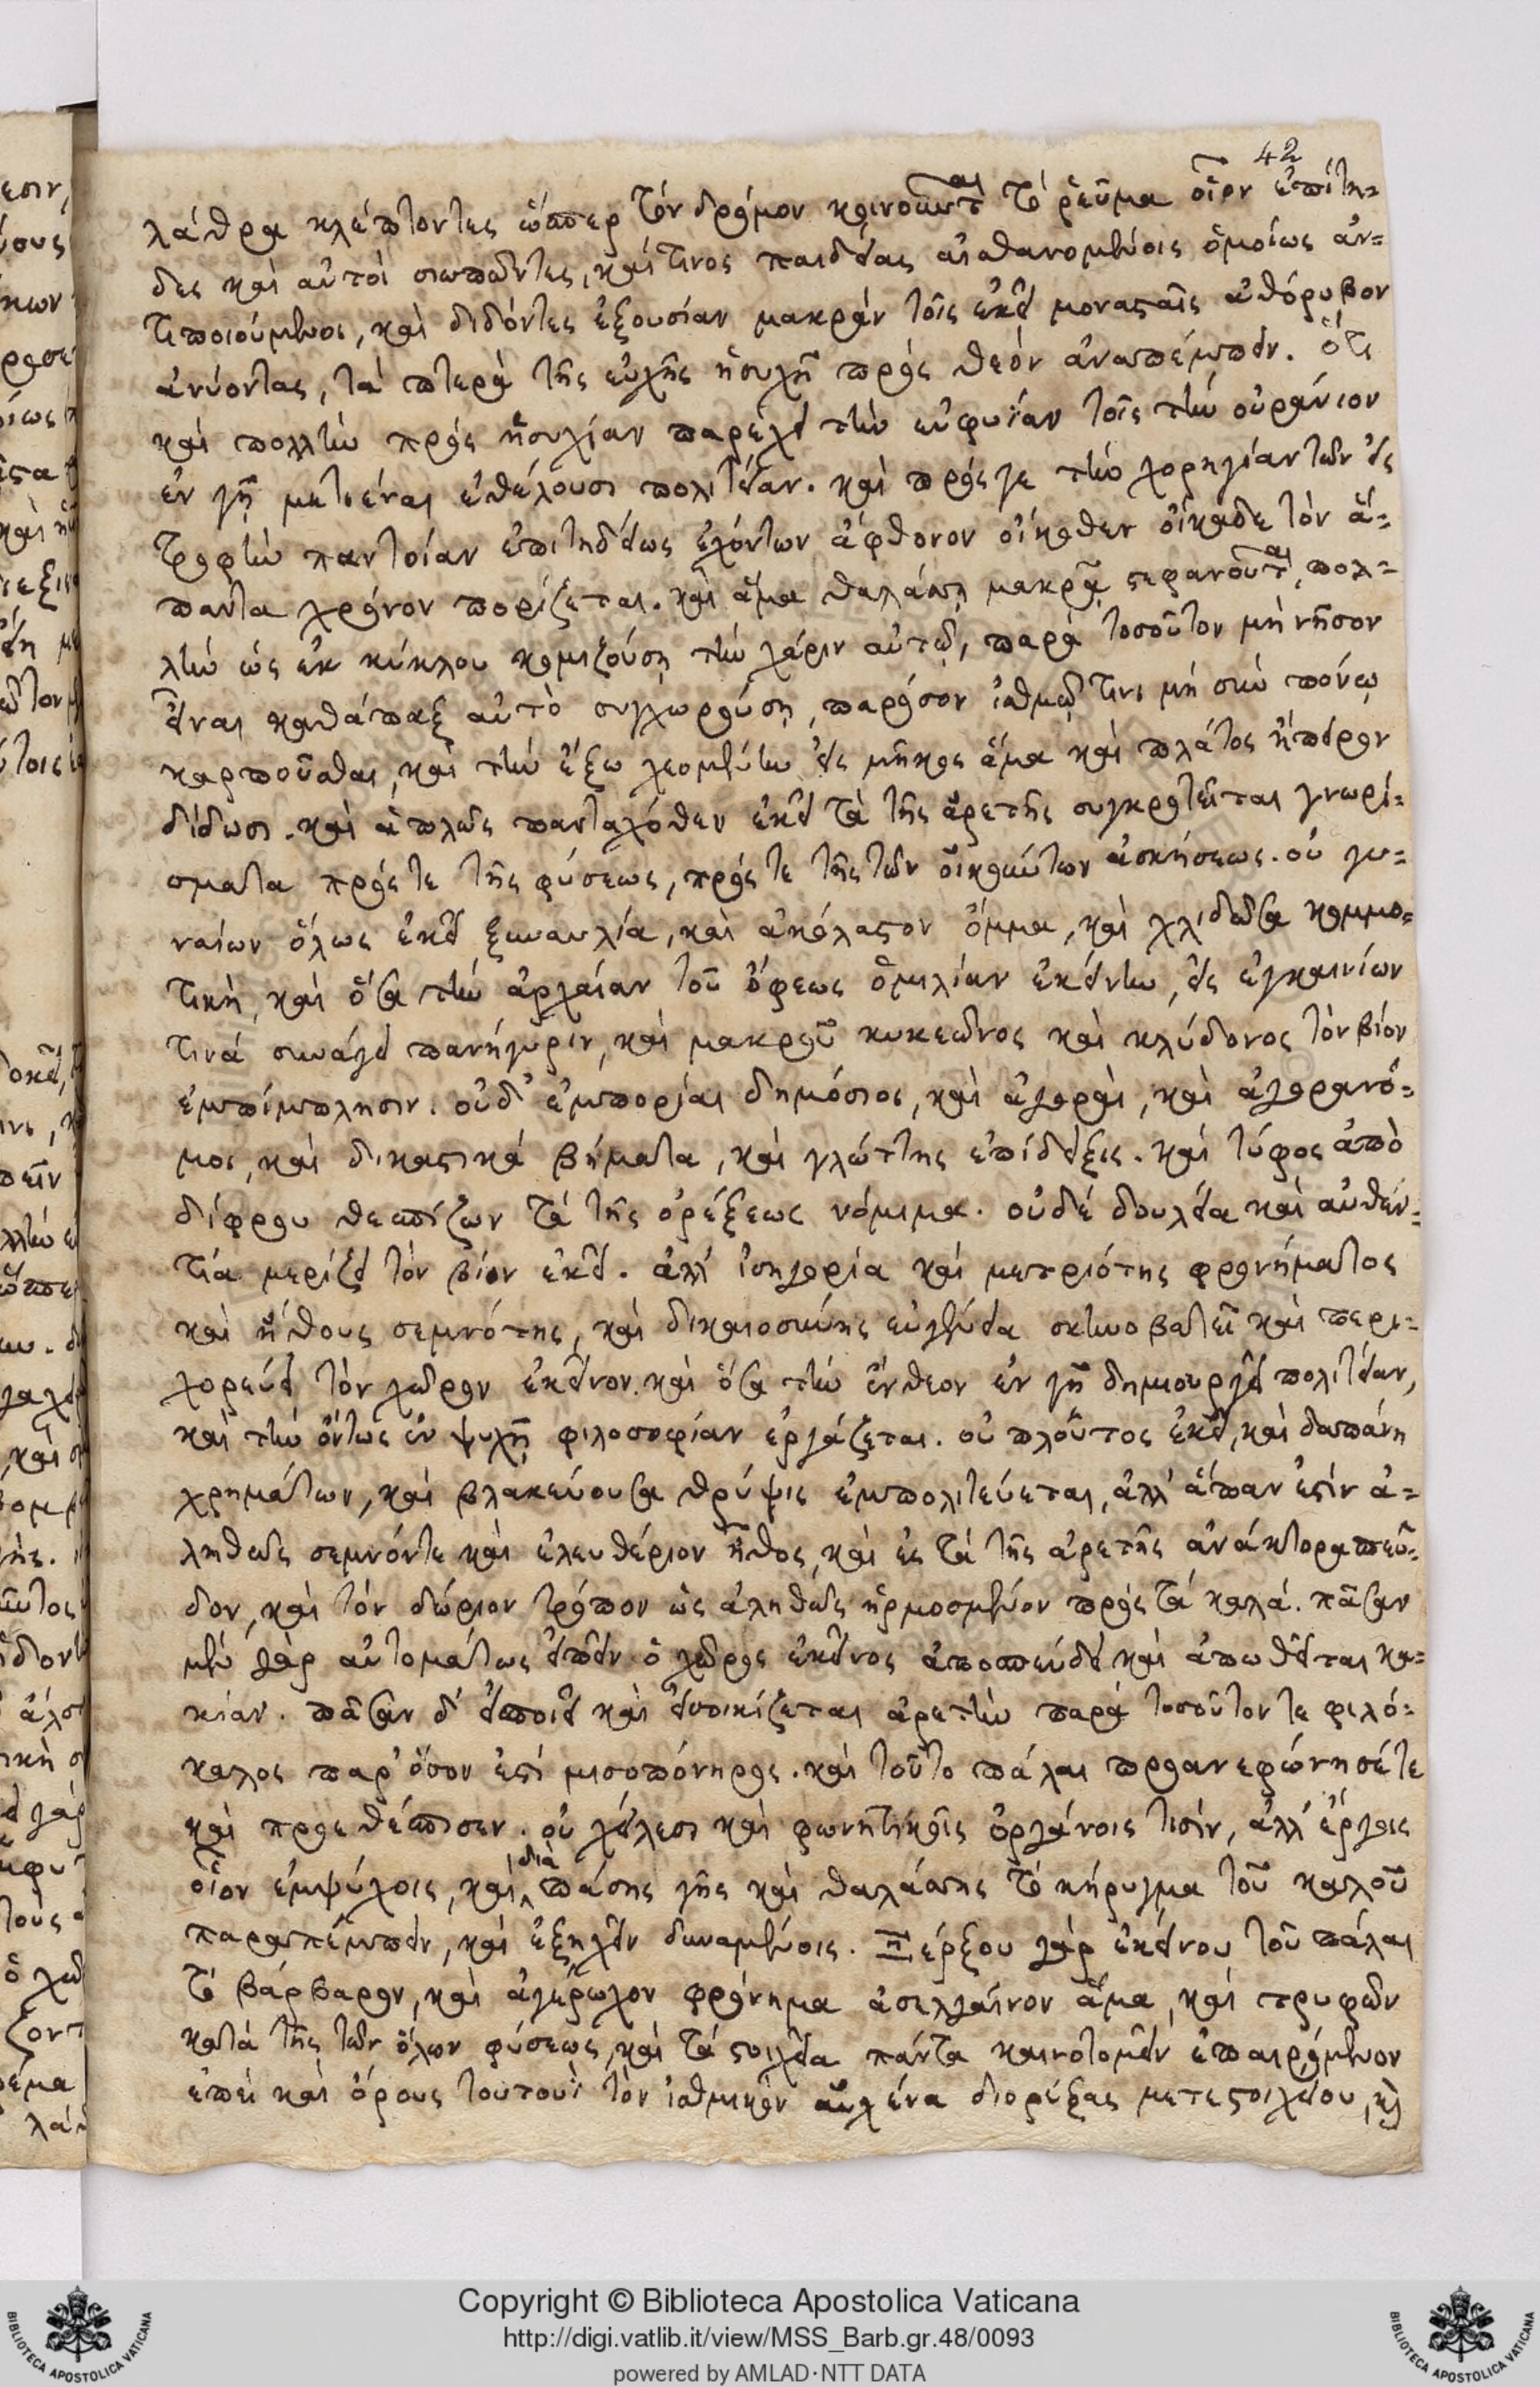 42
λάθρα κλέπτοντες ὥσπερ τὸν δρόμον κοινοῦνται τὸ ῥεῦμα οἷον ἐπίτη-
δες καὶ αὐτοὶ σιωπῶντες, καί τινος παιδείας αἰσθανομένοις ὁμοίως ἀν-
τιποιούμενοι, καὶ διδόντες ἐξουσίαν μακρὰν τοῖς ἐκεῖ μονασταῖς ἀθόρυβον
ἀνύοντας, τὰ πτερὰ τῆς εὐχῆς ἡσυχῇ πρὸς θεὸν ἀναπέμπειν. ὅτι
καὶ πολλὴν πρὸς ἡσυχίαν παρέχει τὴν εὐφυΐαν τοῖς τὴν οὐράνιον
ἐν γῇ μετιέναι ἐθέλουσι πολιτείαν. καὶ πρός γε τὴν χορηγίαν τῶν εἰς
τροφὴν παντοίαν ἐπιτηδείως ἐχόντων ἄφθονον οἴκοθεν οἴκαδε τὸν ἅ-
παντα χρόνον πορίζεται. καὶ ἅμα θαλάσσῃ μακρᾷ στεφανοῦται, πολ-
λὴν ὡς ἐκ κύκλου κομιζούσῃ τὴν χάριν αὐτῷ, παρὰ τοσοῦτον μὴ νῆσον
εἶναι καθάπαξ αὐτὸ συγχωρούσῃ, παρόσον ἰσθμῷ τινι μὴ σὺν πόνῳ
καρποῦσθαι, καὶ τὴν ἔξω χεομένην εἰς μῆκος ἅμα καὶ πλάτος ἤπειρον
δίδωσι. καὶ ἁπλῶς πανταχόθεν ἐκεῖ τὰ τῆς ἀρετῆς συγκροτεῖται γνωρί-
σματα πρός τε τῆς φύσεως, πρός τε τῆς τῶν οἰκούντων ἀσκήσεως. οὐ γυ-
ναίων ὅλως ἐκεῖ ξυναυλία, καὶ ἀκόλαστον ὄμμα, καὶ χλιδῶσα κομμω-
τικὴ, καὶ ὅσα τὴν ἀρχαίαν τοῦ ὄφεως ὁμιλίαν ἐκείνην, εἰς ἐγκαινίων
τινά συνάγει πανήγυριν, καὶ μακροῦ κυκεῶνος καὶ κλύδονος τὸν βίον
ἐμπίμπλησιν. οὐδ' ἐμπορίαι δημόσιοι, καὶ ἀγοραὶ, καὶ ἀγορανό-
μοι, καὶ δικαστικά βήματα, καὶ γλώττης ἐπίδειξις. καὶ τύφος ἀπὸ
δίφρου θεσπίζων τὰ τῆς ὀρέξεως νόμιμα. οὐδὲ δουλεία καὶ αὐθεν-
τία μερίζει τὸν βίον ἐκεῖ. ἀλλ' ἰσηγορία καὶ μετριότης φρονήματος
καὶ ἤθους σεμνότης, καὶ δικαιοσύνης εὐγένεια σκηνοβατεῖ καὶ περι-
χορεύει τὸν χῶρον ἐκεῖνον. καὶ ὅσα τὴν ἔνθεον ἐν γῇ δημιουργεῖ πολιτείαν,
καὶ τὴν ὄντως ἐν ψυχῇ φιλοσοφίαν ἐργάζεται. οὐ πλοῦτος ἐκεῖ, καὶ δαπάνη
χρημάτων, καὶ βλακεύουσα θρύψις ἐμπολιτεύεται, ἀλλ' ἅπαν ἐστὶν ἀ-
ληθῶς σεμνόν τε καὶ ἐλευθέριον ἦθος, καὶ ἐς τὰ τῆς ἀρετῆς ἀνάκτορα σπεῦ-
δον, καὶ τὸν δώριον τρόπον ὡς ἀληθῶς ἡρμοσμένον πρὸς τὰ καλά. πᾶσαν
μὲν γὰρ αὐτομάτως εἰπεῖν ὁ χῶρος ἐκεῖνος ἀποπεύδει καὶ ἀπωθεῖται κα-
κίαν. πᾶσαν δ' εἰσποιεῖ καὶ εἰσοικίζεται ἀρετὴν παρὰ τοσοῦτον τε φιλό-
καλος παρ' ὅσον ἐστὶ μισοπόνηρος. καὶ τοῦτο πάλαι προανεφώνησέ τε
καὶ προεθέσπισεν. οὐ χείλεσι καὶ φωνητικοῖς ὀργάνοις τισίν, ἀλλ' ἔργοις
οἷον ἐμψύχοις, καὶ διὰ πάσης γῆς καὶ θαλάσσης τὸ κήρυγμα τοῦ καλοῦ
παραπέμπειν, καὶ ἐξηχεῖν δυναμένοις. Ξέρξου γὰρ ἐκείνου τοῦ πάλαι
τὸ βάρβαρον, καὶ ἀγέρωχον φρόνημα ἀσελγαῖνον ἅμα, καὶ τρυφῶν
κατὰ τῆς τῶν ὅλων φύσεως, καὶ τὰ στοιχεῖα πάντα καινοτομεῖν ἐπαιρόμενον
ἐπεὶ καὶ ὄρους τουτουῒ τὸν ἰσθμικὸν αὐχένα διορύξας μετεστοιχείου, καὶ
Copyright © Biblioteca Apostolica Vaticana
http://digi.vatlib.it/view/MSS_Barb.gr.48/0093
powered by AMLAD·NTT DATA
BIBLIOTECA APOSTOLICA VATICANA
BIBLIOTECA APOSTOLICA VATICANA